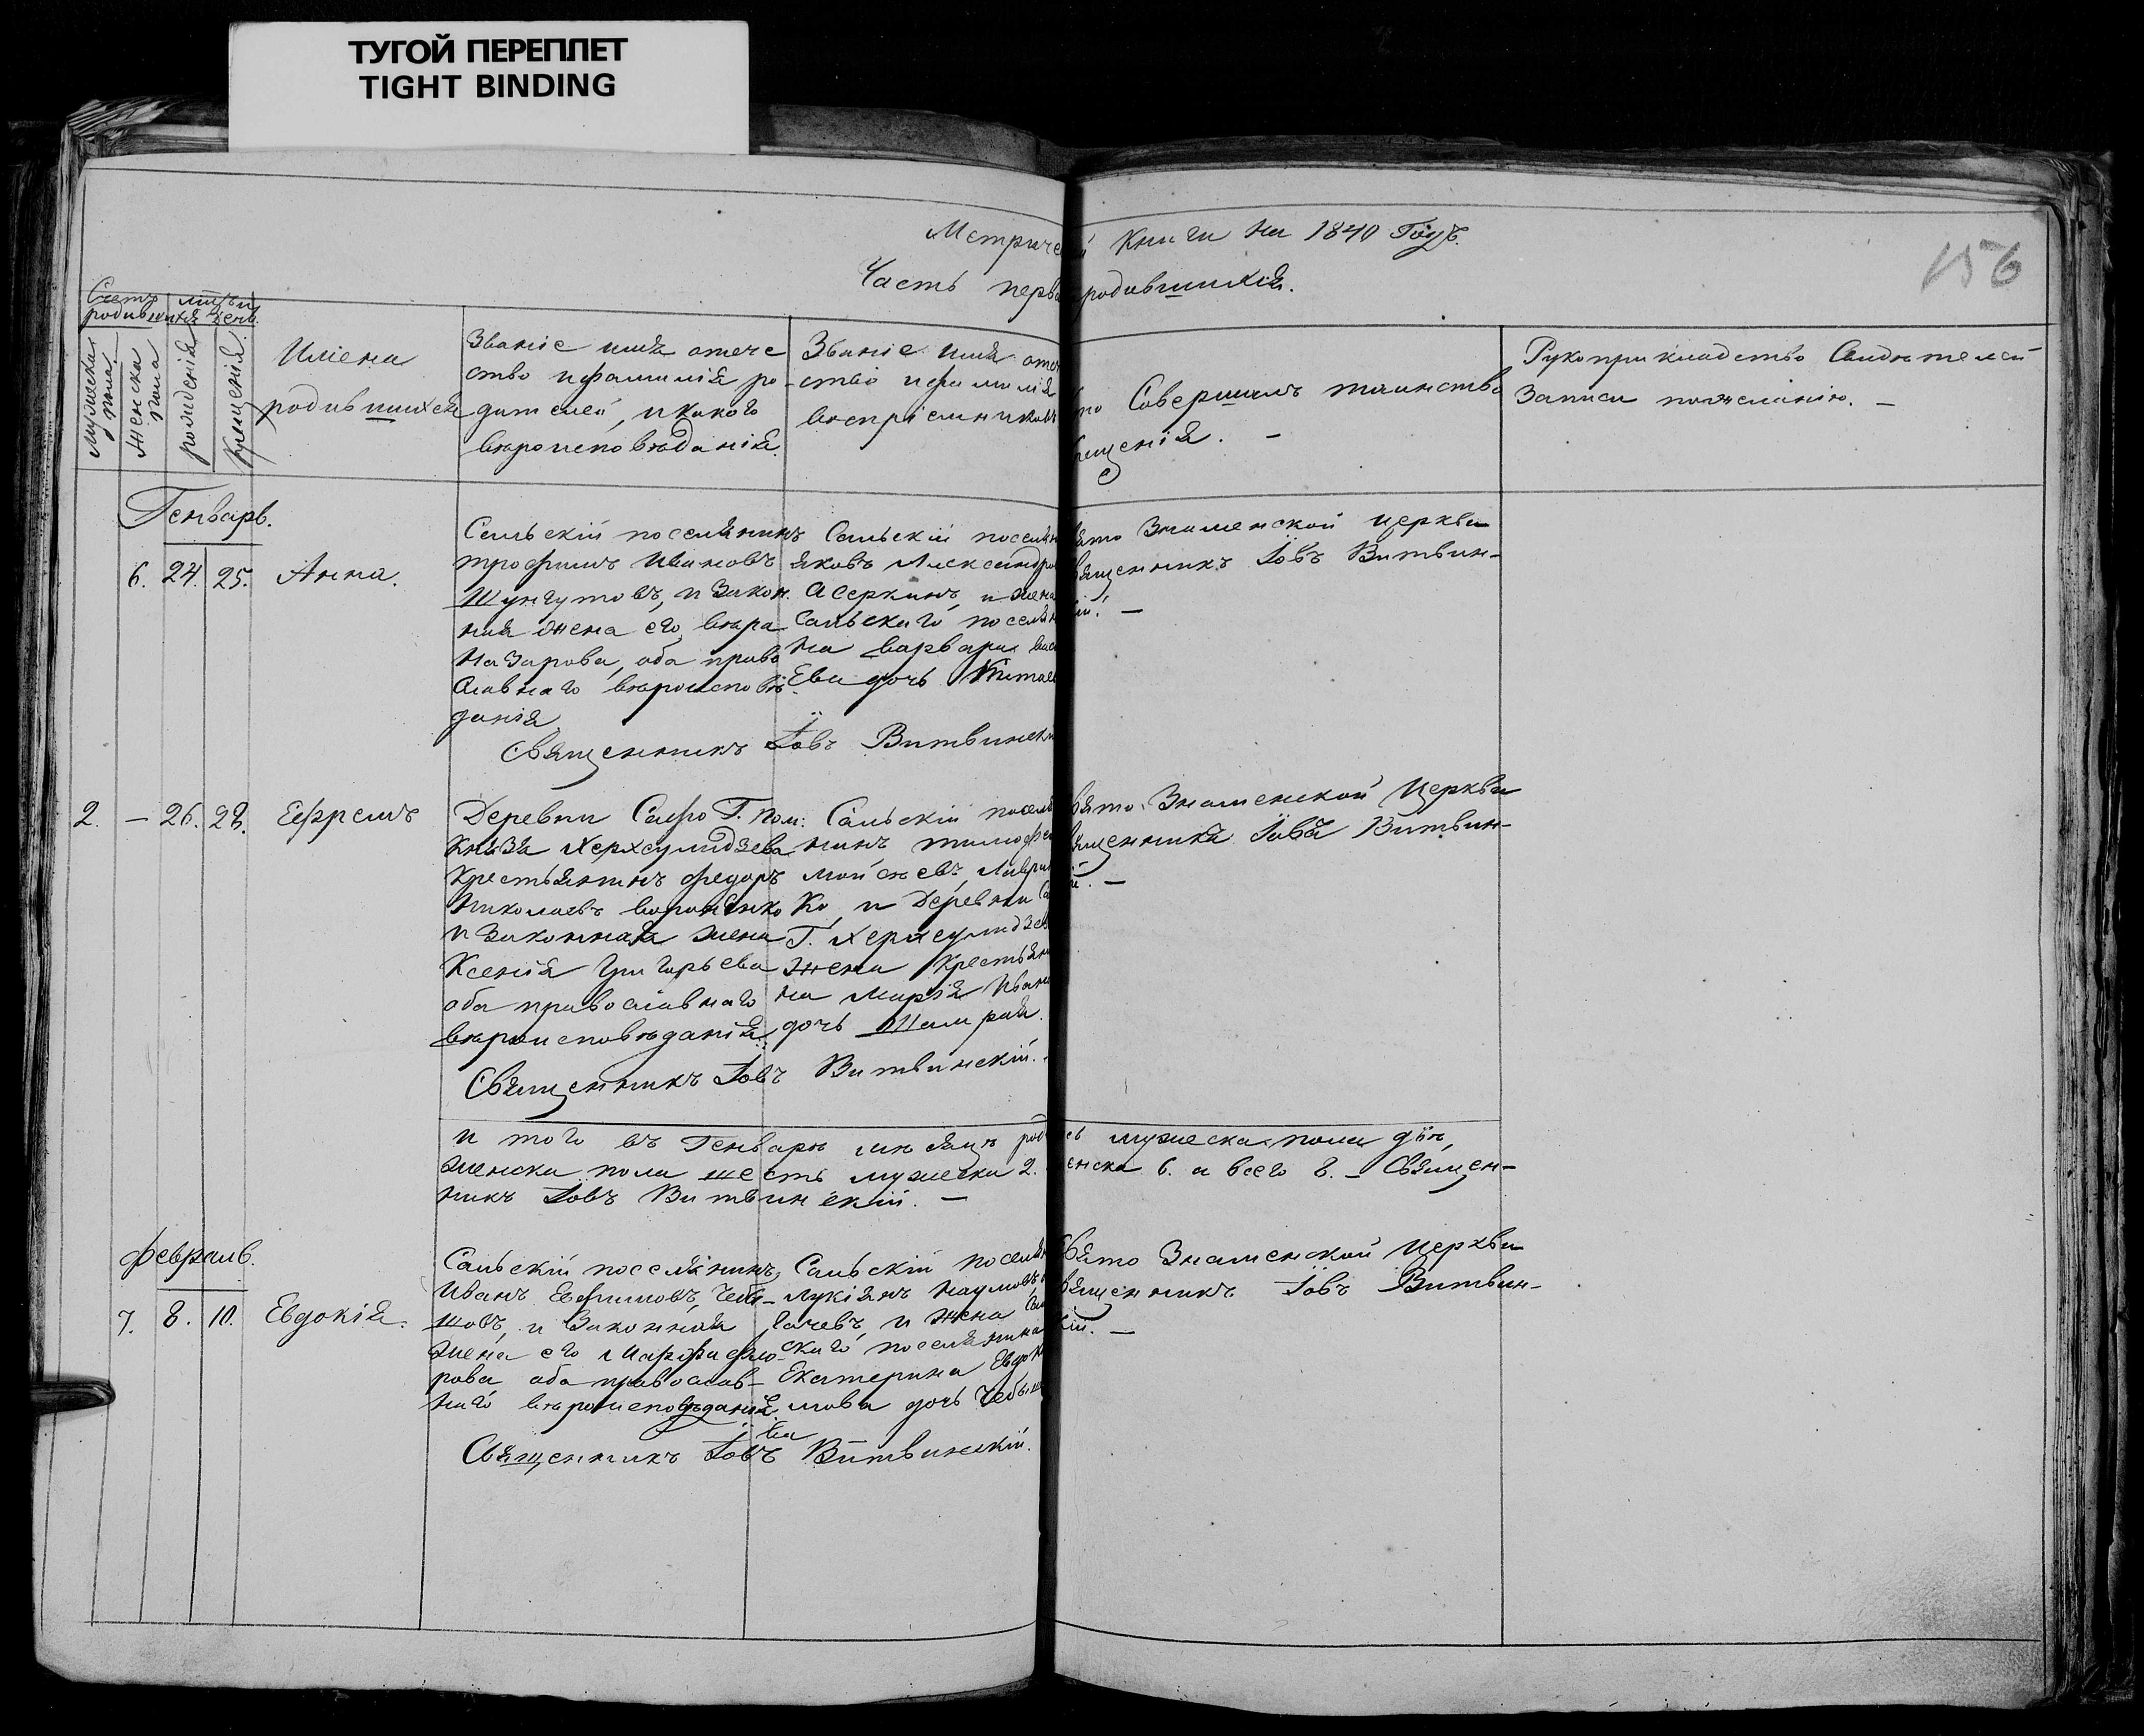 ТУГОЙ ПЕРЕПЛЕТ
TIGHT BINDING
156
Метриче й Книги на 1840 Годъ.
Часть перва родившихся.
Счетъ родившихся
мѣсяцъ и день
Мужеска пола.
Женска пола
рождения
крещенія.
Имена
родившихся
Званіе имя отече
ство и фамилія ро-
дителей, и какого
вѣроисповѣданія.
Званіе имя отече
ство и фамилія
воспріемниковъ
то Совершилъ таинство
рещенія. -
Рукоприкладство Свидѣтелей
Записи пожеланію. -
Генварь.
6. 24. 25. Анна.
Сельскій поселянинъ
трофимъ Ивановъ
Шунгутовъ, и Закон.
ная жена его, вѣра
Назарова, оба право
славнаго вѣроисповѣ
данія
Сельскій поселян
яковъ Александров
Асеркинъ, и жена
Сельскаго поселян
на варвара
Ева дочь
вято Знаменской церкви
вященникъ Іовъ Витвин-
кій. -
Священникъ Іовъ Витвинскій
2. - 26. 28. Ефремъ
Деревни Сафо Г. пом:
Князя Херхеулидзева
Крестьянинъ федоръ
Николаевъ вороненко
и Законная жена
Ксенія Григорьева
оба православнаго
вѣроисповѣданія.
Сельскій поселя
нинъ тимофей
Мойсѣевъ, Лаврин
ко, и Деревни Са
Г. Херхеулидзев
жена Крестьяни
на Марія Иван
дочь Шамрая.
вято Знаменской Церкви
ященникъ Іовъ Витвин-
й. -
Священникъ Іовъ Витвинскій.
и того въ Генварѣ мѣсяцѣ род сь мужеска пола двѣ,
женска пола шесть мужеска 2. женска 6. а всего 8. - Священ-
никъ Іовъ Витвинскій. -
февраль.
7. 8. 10. Евдокія.
Сельскій поселянинъ,
Иванъ Ефимовъ, Чебы-
шовъ, и Законная
жена его Марфа фдо-
рова оба православ-
наго вѣроисповѣданія
Сельскій поселян
лукіянъ Наумовъ,
и жена Сель
скаго поселянина
Екатерина Евдоки
мова дочь Чебыше
ва
Свято Знаменской Церкви
вященникъ Іовъ Витвин-
кій. -
Священникъ Іовъ Витвинскій.